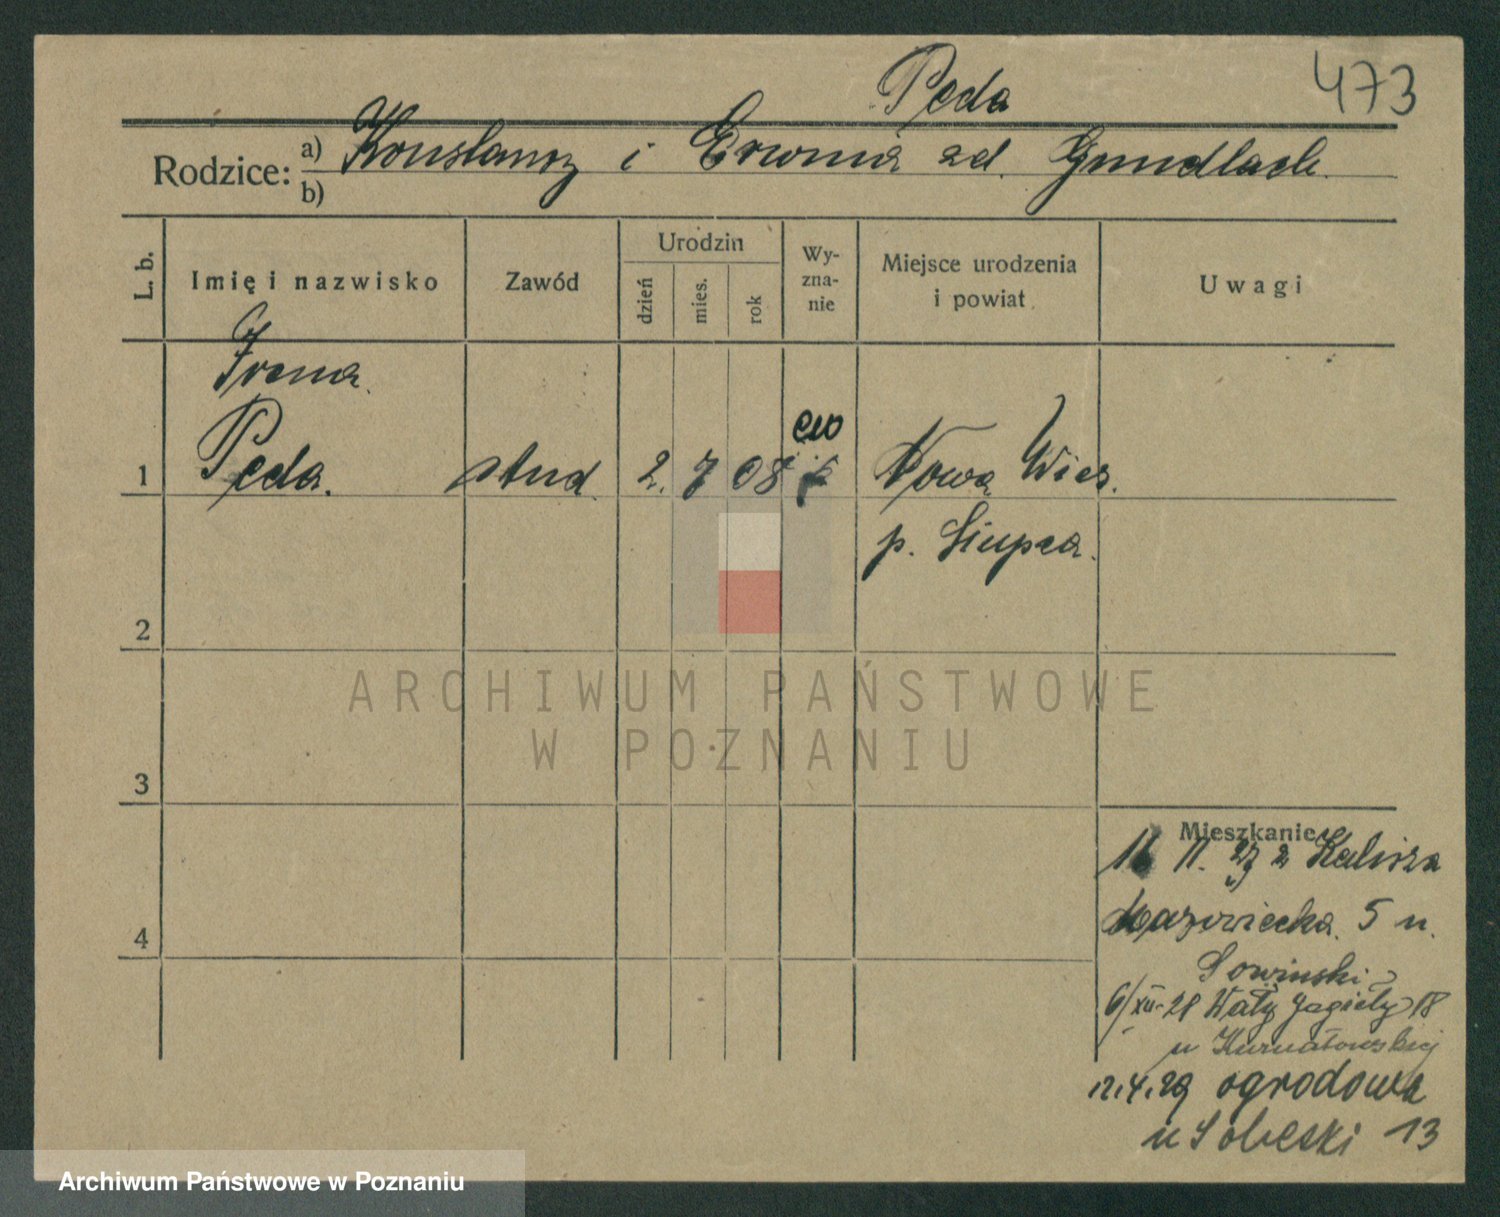 Pęda 473
Rodzice: a) Konstanty i Erwina zd. Gundlach.
b)
L. b. Imię i nazwisko Zawód Urodzin dzień mies. rok Wy-zna-nie Miejsce urodzenia i powiat Uwagi
Irena.
1 Pęda. stud. 2. 7 08 ew Nowa Wies.
p. Słupca.
2
3
4
Mieszkanie
16 11. 27 z Kalisza
Mazowiecka. 5 u.
Sowinski
6/XII-28 Wały Jagiełły 18
u Kurnatowskiej
12.4.29 ogrodowa
u Sobeski 13
ARCHIWUM PAŃSTWOWE
W POZNANIU
Archiwum Państwowe w Poznaniu